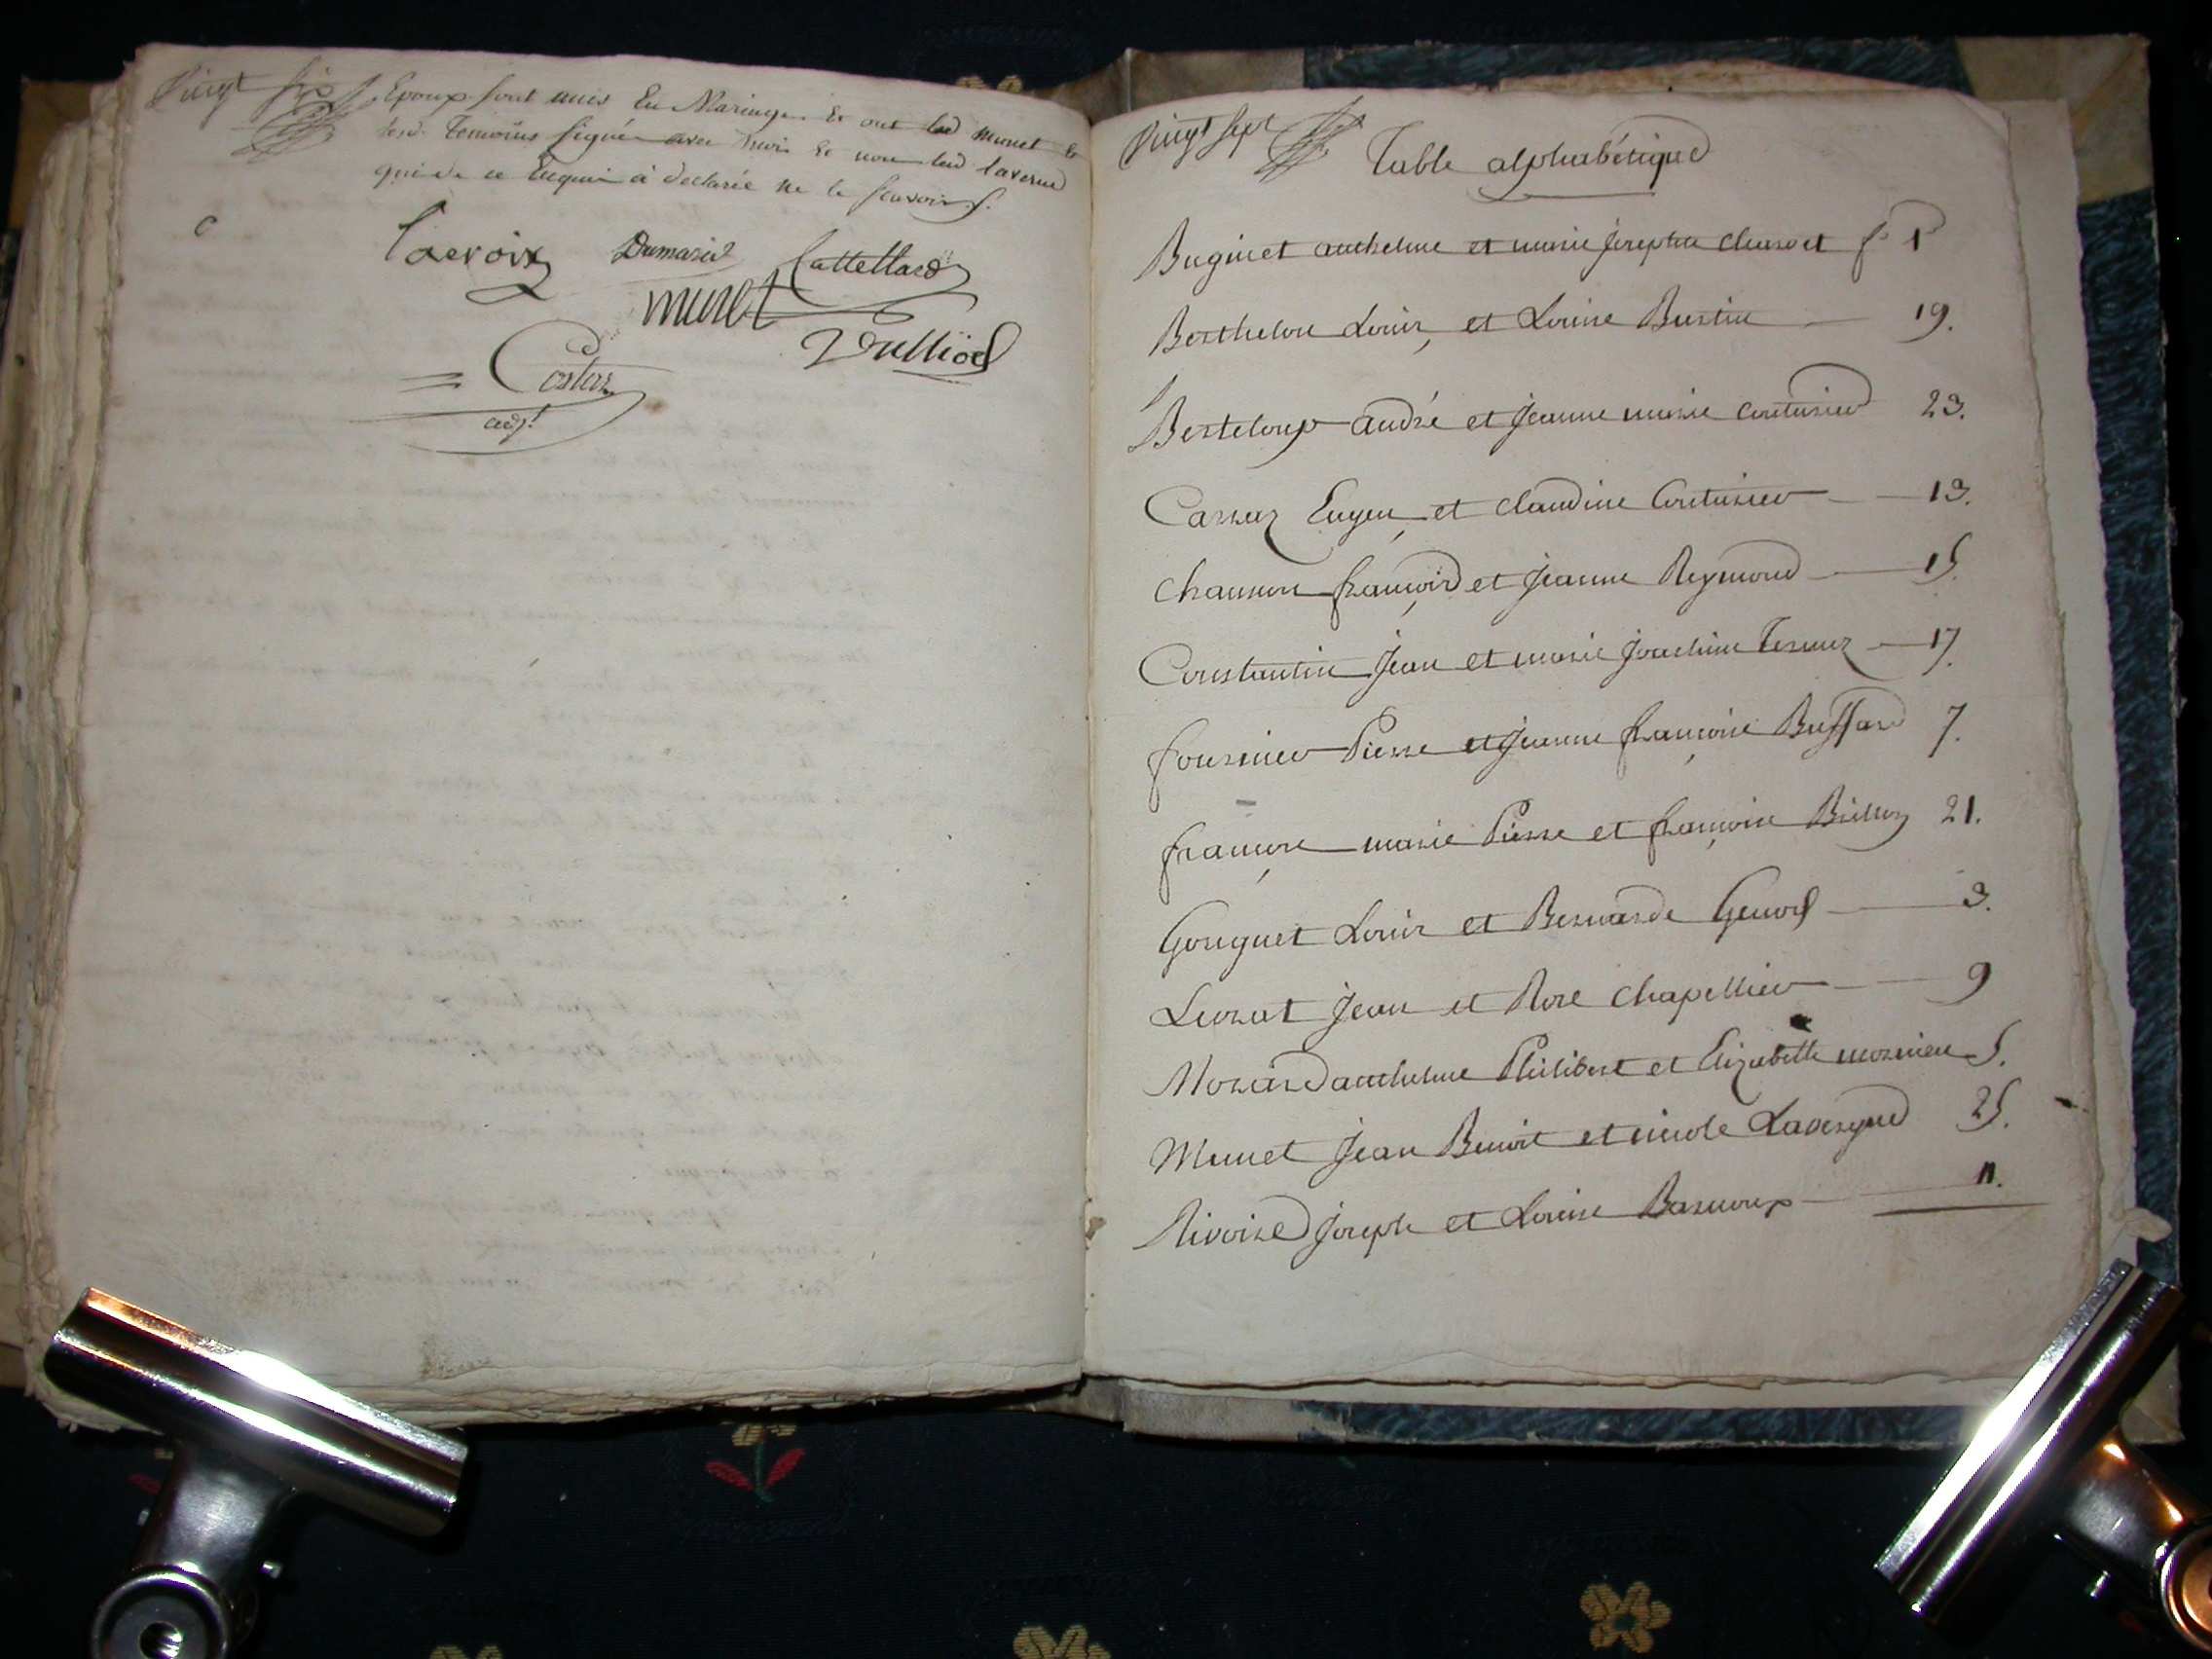 Vingt six
Epoux sont unis En Mariage. Et ont led munet &
lesd. Temoins signé avec nous Et non lad laverne
qui de ce Enquis à declarée ne le scavoir.
Lacroix Dumarest Cattelland
munet
Vulliod
Costaz
adj.t
Vingt sept
Table alphabétique
Buginet anthelme et marie josephte charvet f.o 1
Berthelon Louis, et Louise Bustin 19.
Berteloup andré et jeanne marie couturier 23.
Carraz Eugen, et claudine Couturier 13.
Chanron françois et jeanne Reymond 15
Constantin jean et marie joachim Terraz 17.
fournier Pierre et jeanne françoise Buffard 7.
françon marie Pierre et françoise Brilloz 21.
Gouguet Louis et Bernarde Genod 3.
Levrat jean et Rose Chapellier 9
Morard anthelme Philibert et Elizabette mornieu 5.
Munet jean Benoit et nicole Lavergne 25.
Rivoire joseph et Louise Barnoux 11.